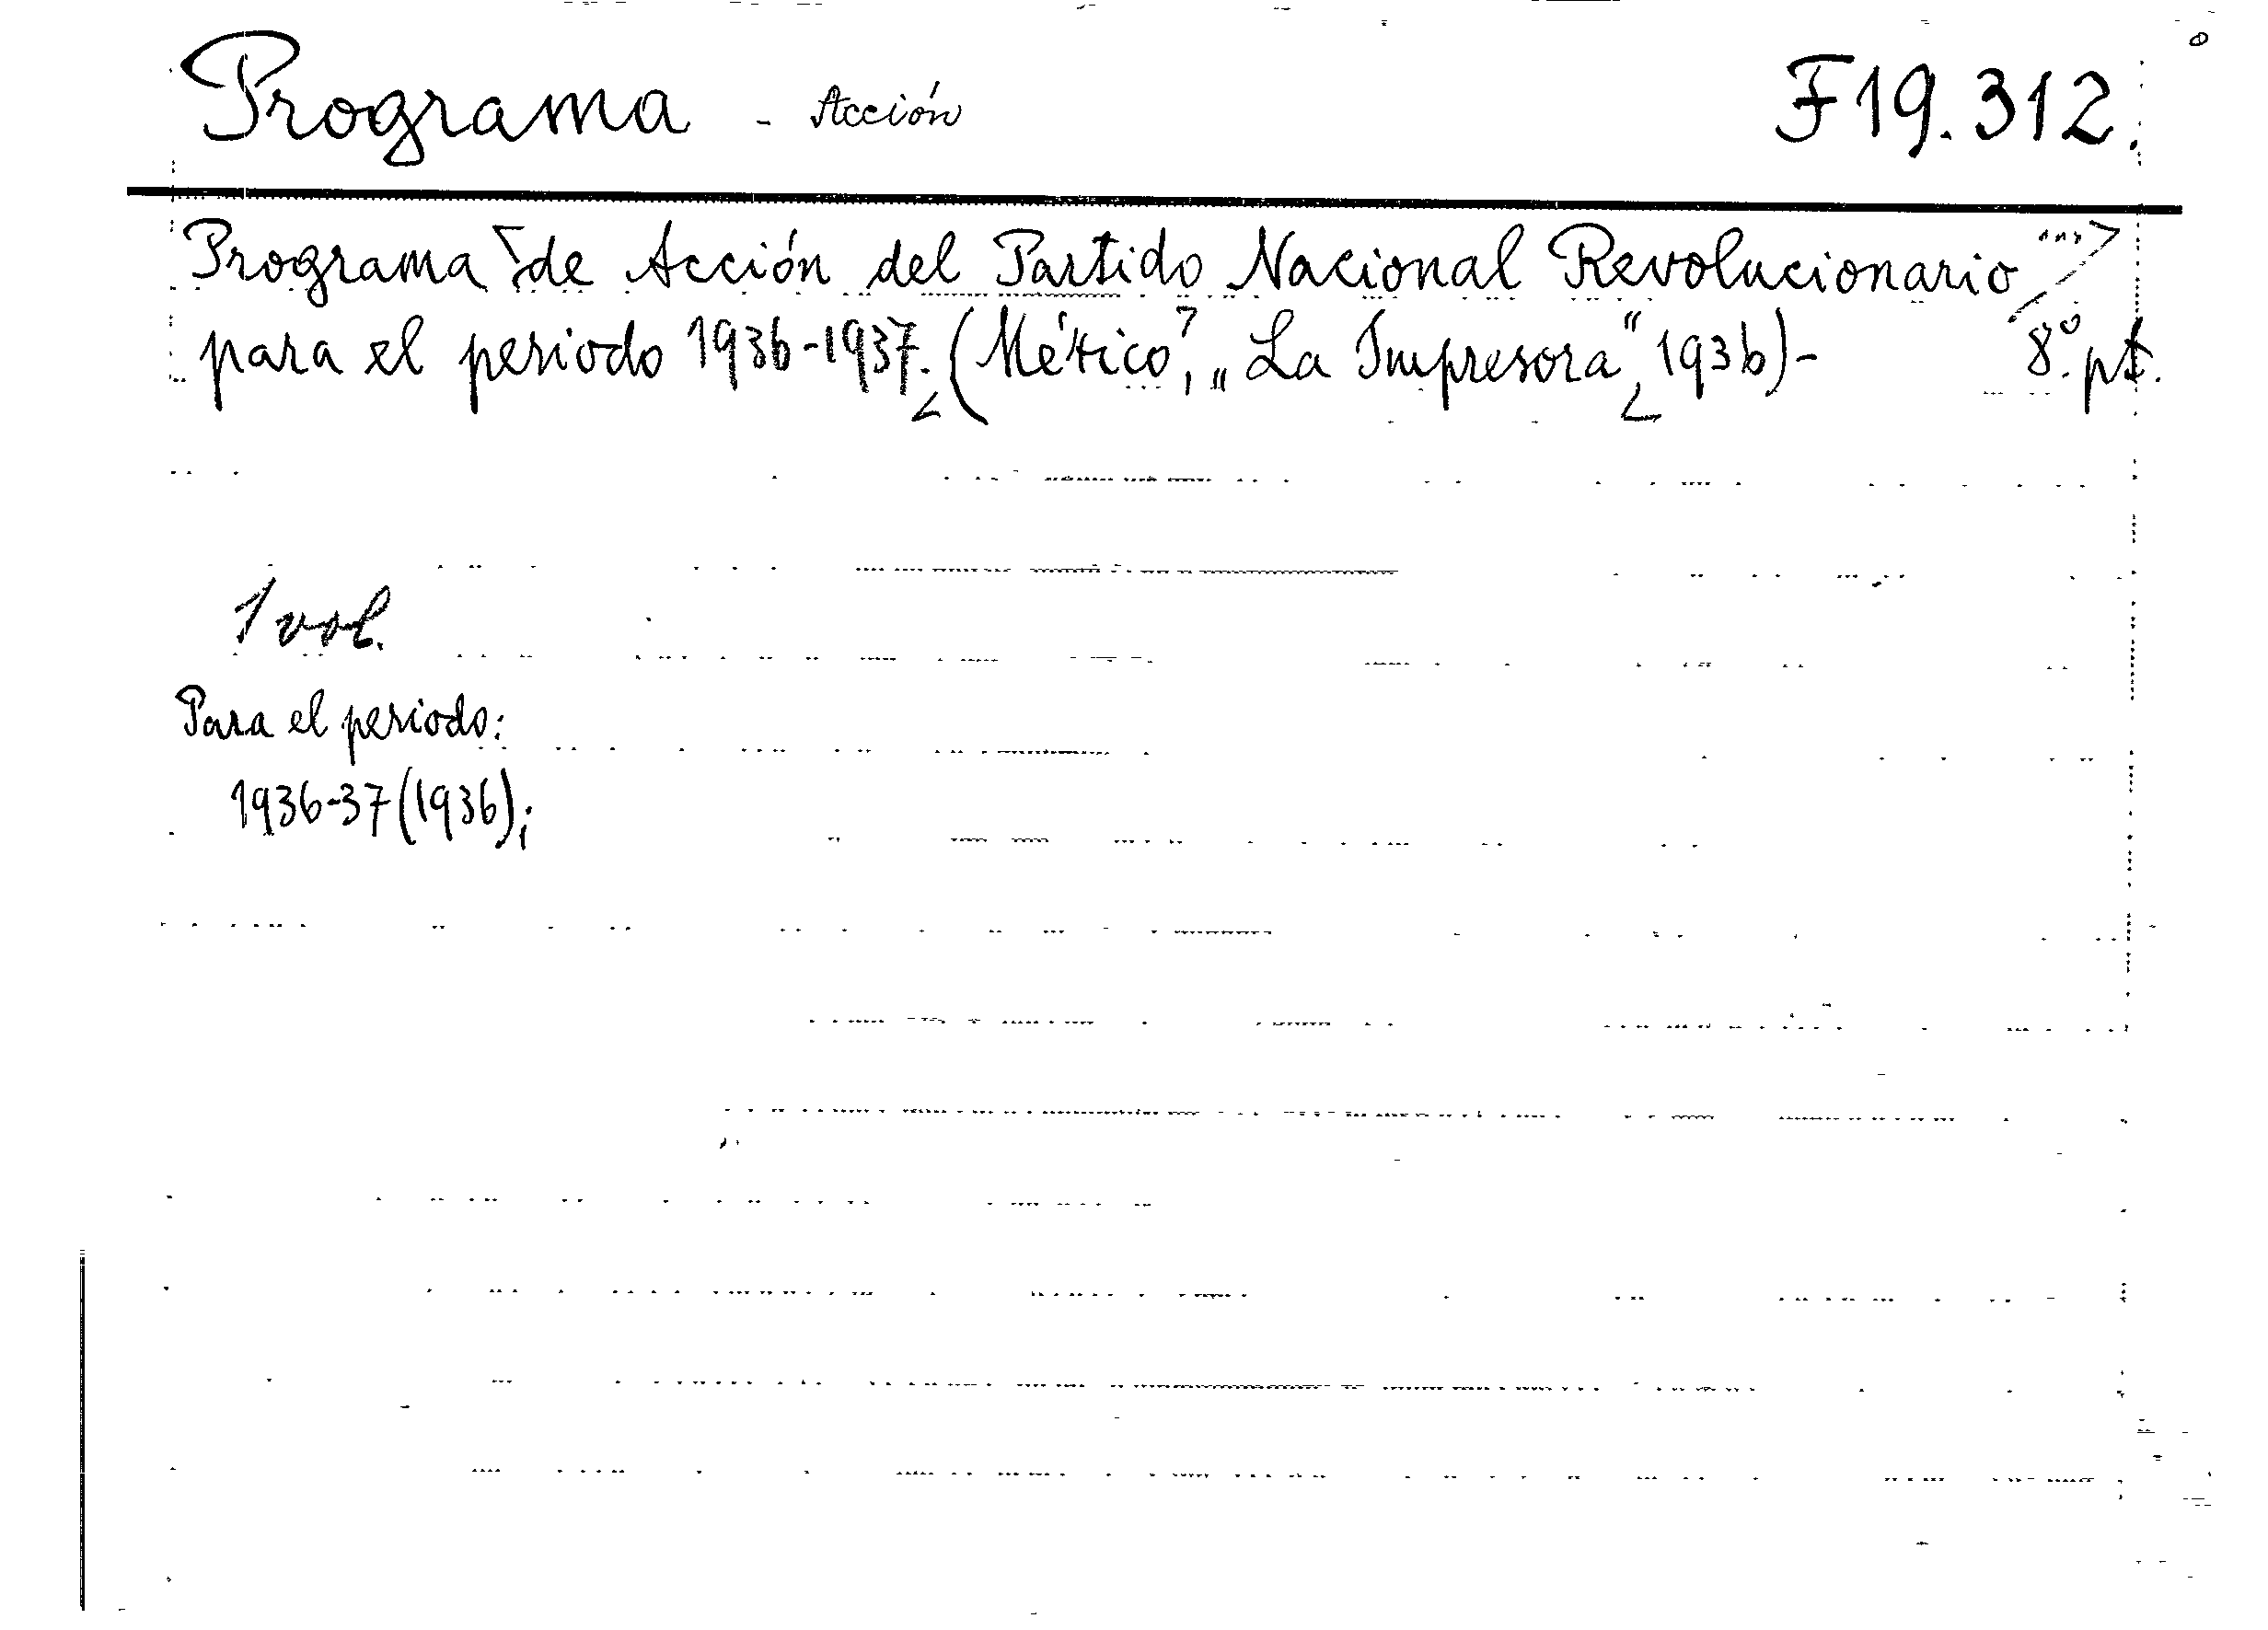 Programa - Acción F19.312.
Programa de Acción del Partido Nacional Revolucionario
para el periodo 1936-1937. (México, „La Impresora“, 1936)- 8º. pt.
1 vol.
Para el periodo:
1936-37 (1936);